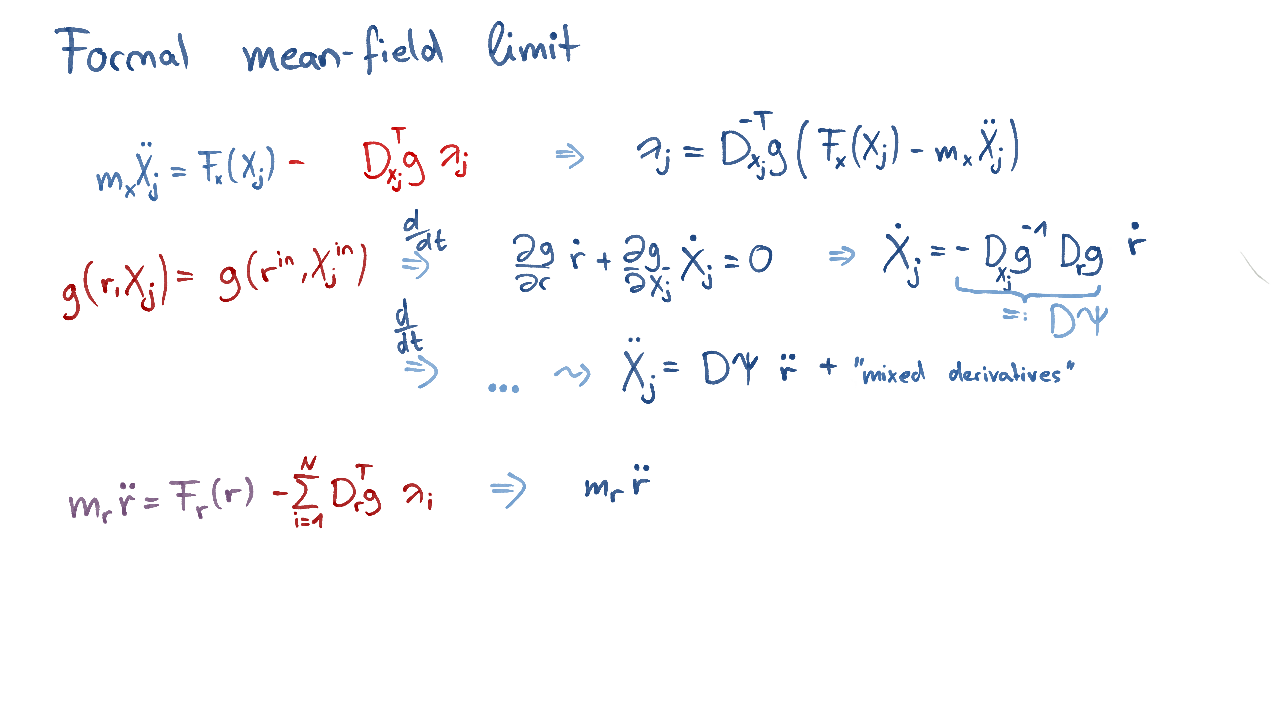 Formal mean-field limit
m_x Ẍ_j = F_x(X_j) - D_{x_j}^T g λ_j ⇒ λ_j = D_{x_j}^{-T} g ( F_x(X_j) - m_x Ẍ_j )
g(r, X_j) = g(r^{in}, X_j^{in}) d/dt ⇒ ∂g/∂r ṙ + ∂g/∂X_j Ẋ_j = 0 ⇒ Ẋ_j = - D_{x_j} g^{-1} D_r g ṙ
=: DΨ
d/dt ⇒ ... ⇝ Ẍ_j = DΨ r̈ + "mixed derivatives"
m_r r̈ = F_r(r) - ∑_{i=1}^N D_r^T g λ_i ⇒ m_r r̈